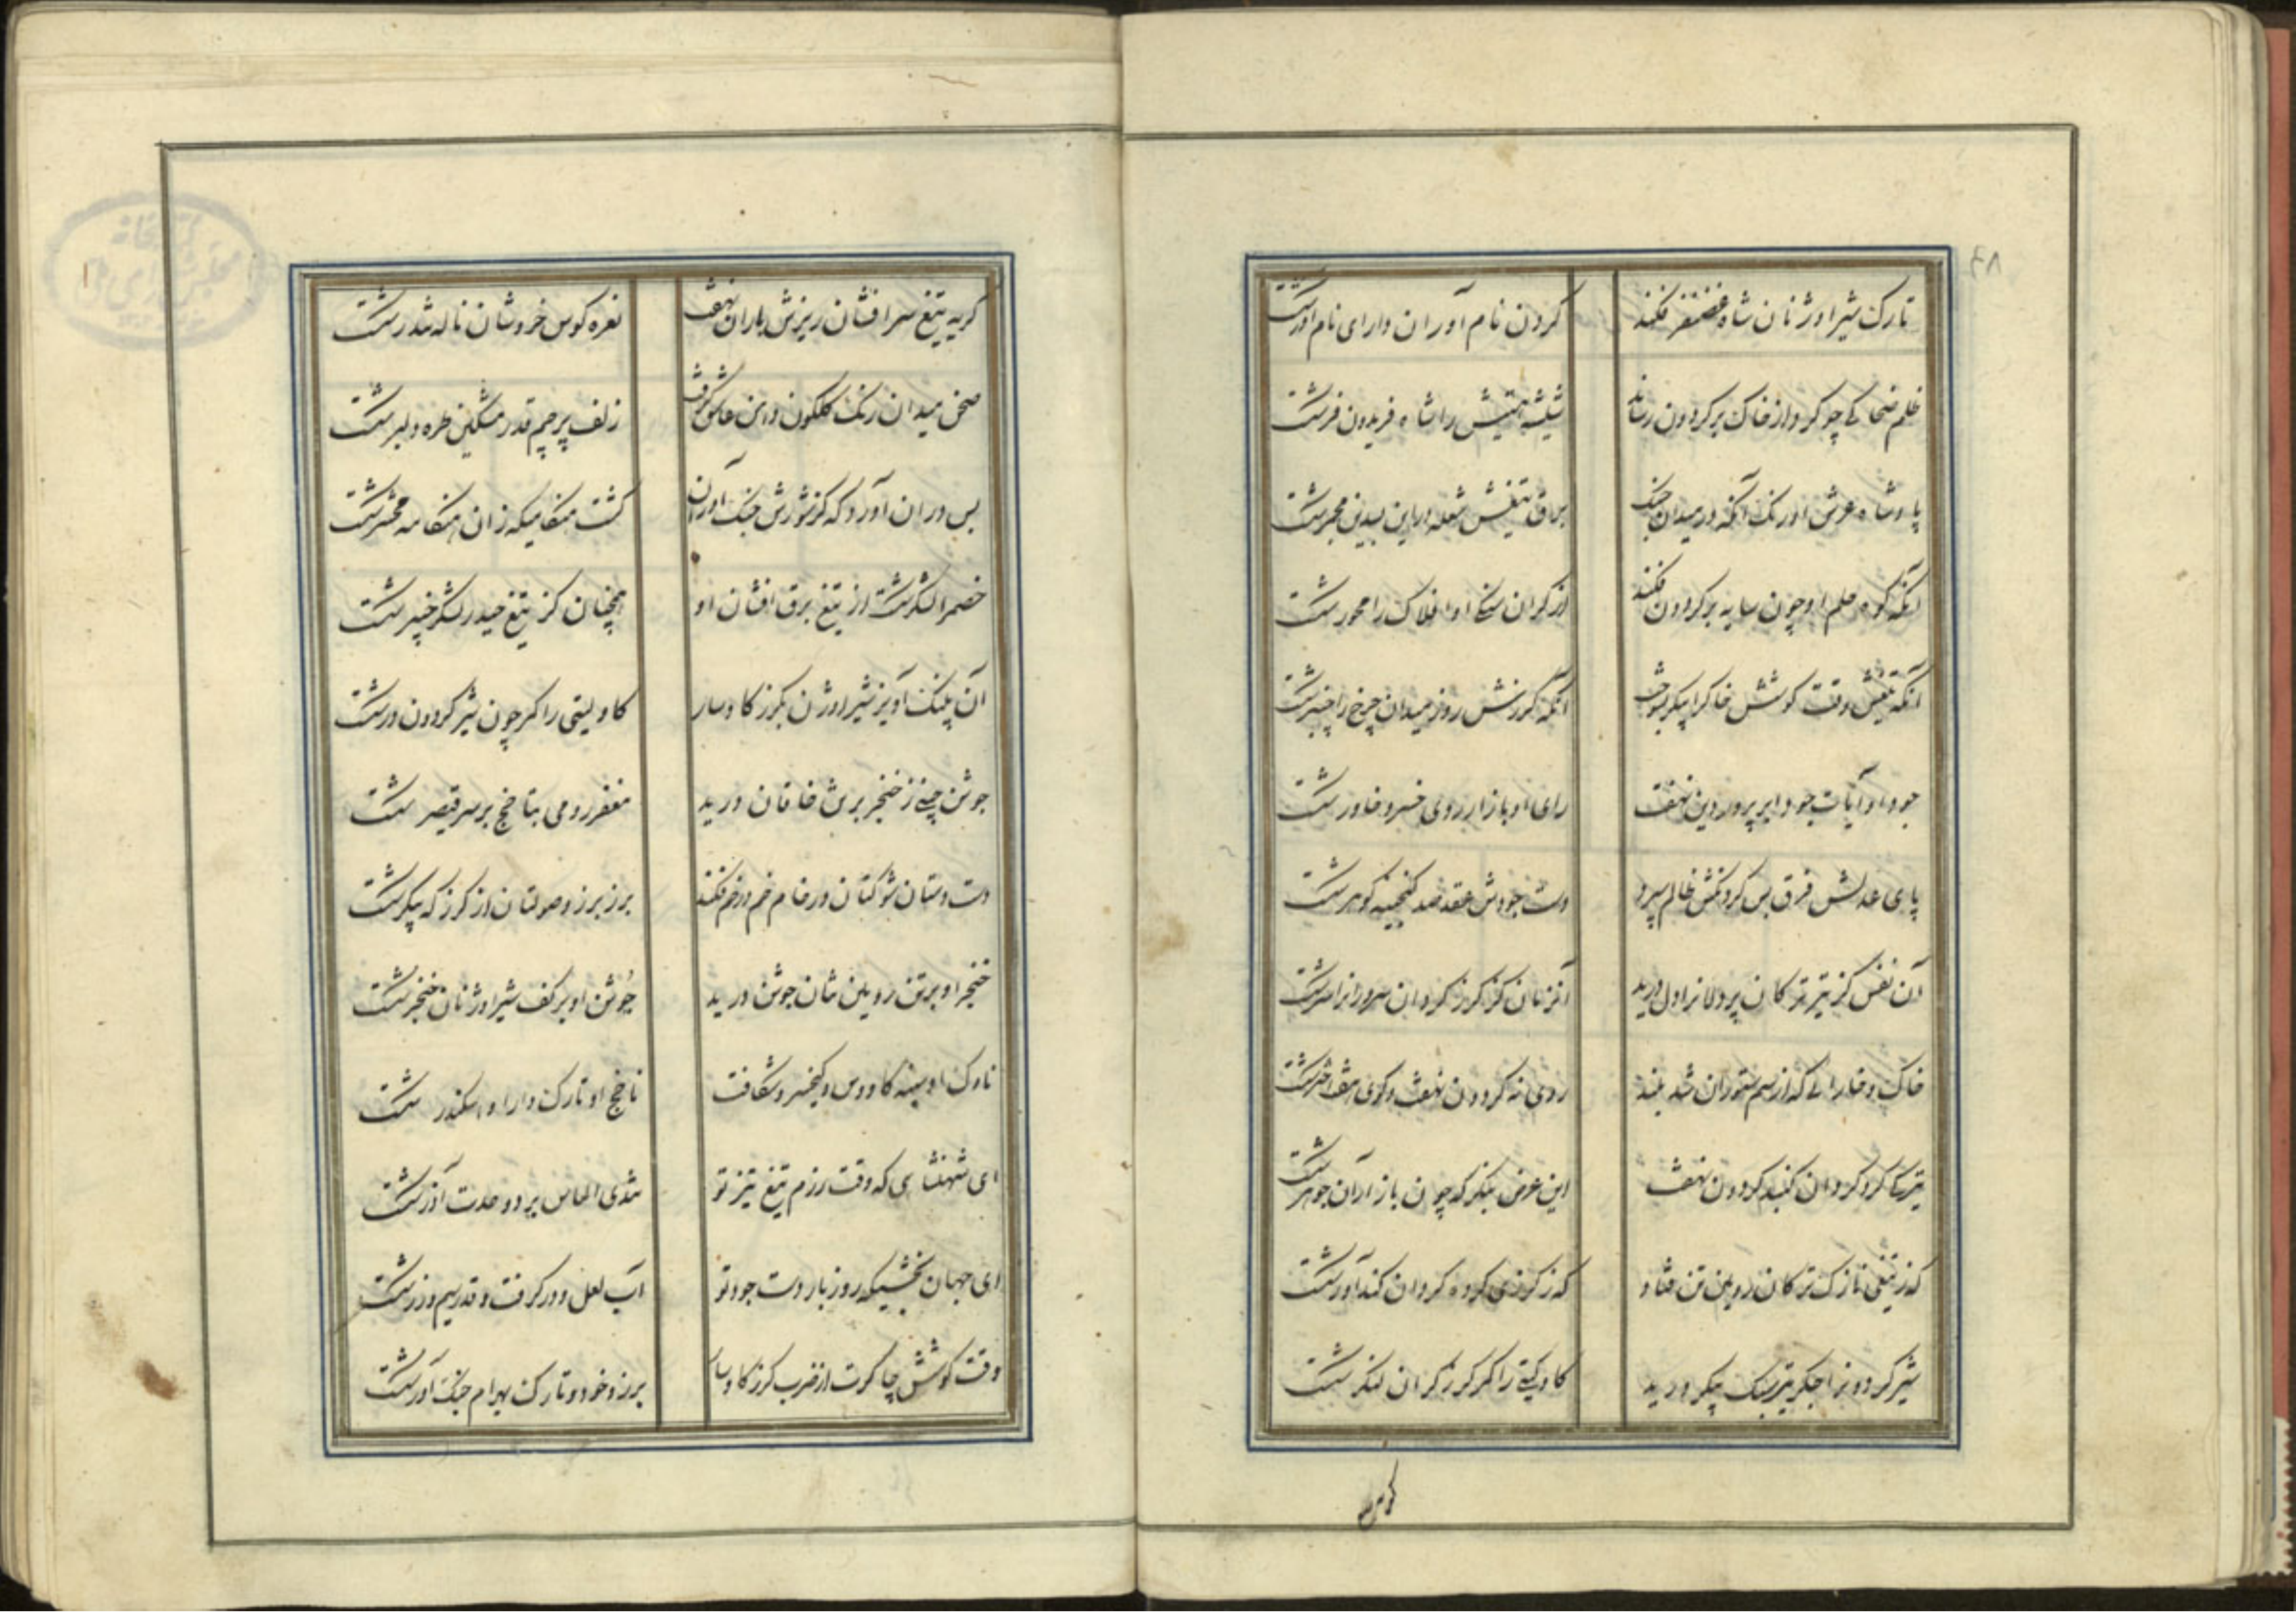 تارک شیراوژنان شاه غضنفر فکند
کردن نام آوران دارای نام آورشکست
ظلم ضحاکی چو کرد از خاک بر کردون رساند
شیشه اش را شاه فریدون فرشکست
پادشاه عرش اورنک آنکه در میدان جنک
برق تیغش شعله در این بسدین مجمرشکست
آنکه کوه حلم او چون سایه بر کردون فکند
از کران سنکی او افلاک را محورشکست
آنکه تیغش وقت کوشش خاکرا پیکر بسوخت
آنکه کرزش روز میدان چرخ را چنبرشکست
جود او آیات جود ابر پروردین نهفت
رای او بازار روی خسرو خاورشکست
پای عدلش فرق بس کردنکش ظالم سپرد
دست جودش عقد صد کنجینه کوهرشکست
آن نفس کز تیر ترکان پردلانرا دل درید
آنزمان کز کرز کردان سرورانرا سرشکست
خاک و خارائی که از سم ستوران شد بلند
روی نه کردون نهفت و کوی هفت اخترشکست
تیره کرد کردان کنبد کردون نهفت
این عرض بنکر که چون بازار آن جوهرشکست
که ز تیغی نازک ترکان روین تن فتاد
که ز کرزی کرده کردان کندآورشکست
شیر کردونرا جکر تیر سبک پیکر درید
کاو کیتی را کمر کرز کران لنکرشکست
کریه
کریه تیغ سرافشان ریزش باران نهفت
نعره کوس خروشان ناله تندرشکست
صحن میدان رنک کلکون دامن عاشق کرفت
زلف پرچم قدر مشکین طره دلبرشکست
بس در ان آورد که کز شورش جنک آوران
کشت هنکامیکه زان هنکامه محشرشکست
خصم را لشکرشکست از تیغ برق افشان او
همچنان کز تیغ حیدر لشکر خیبرشکست
آن پلنک آویز شیراوژن بکرز کاوسار
کاو کیتی را کمر چون شیر کردون درشکست
جوشن چینی ز خنجر بر تن خاقان درید
مغفر رومی بناچخ بر سر قیصرشکست
دست دستان شوکتان در خام خم در خم فکند
برز برزو صولتان از کرز که پیکرشکست
خنجر او بر تن رویین تنان جوشن درید
جوشن او بر کف شیراوژنان خنجرشکست
ناوک او سینه کاووس و کیخسرو شکافت
ناچخ او تارک دارا و اسکندرشکست
ای شهنشاهی که وقت رزم تیغ تیز تو
تندی الماس برد و حدت آذرشکست
ای جهان بخشیکه روز بار دست جود تو
آب لعل و در کرفت و قدر سیم و زرشکست
وقت کوشش چاکرت از ضرب کرز کاوسار
برز و خود و تارک بهرام جنک آورشکست